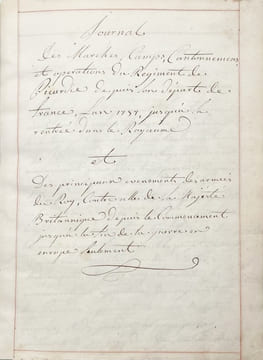 Journal
Des Marches, Camps, Cantonnemens
et operations du Regiment de
Picardie depuis son départe de
france, L'an 1757, jusqu'a la
rentrée dans le Royaume
et
Des principaux evenements des armées
du Roy, Contre celles de Sa Majesté
Britannique depuis le Commencement
jusqu'a la fin de la guerre en
europe seulement